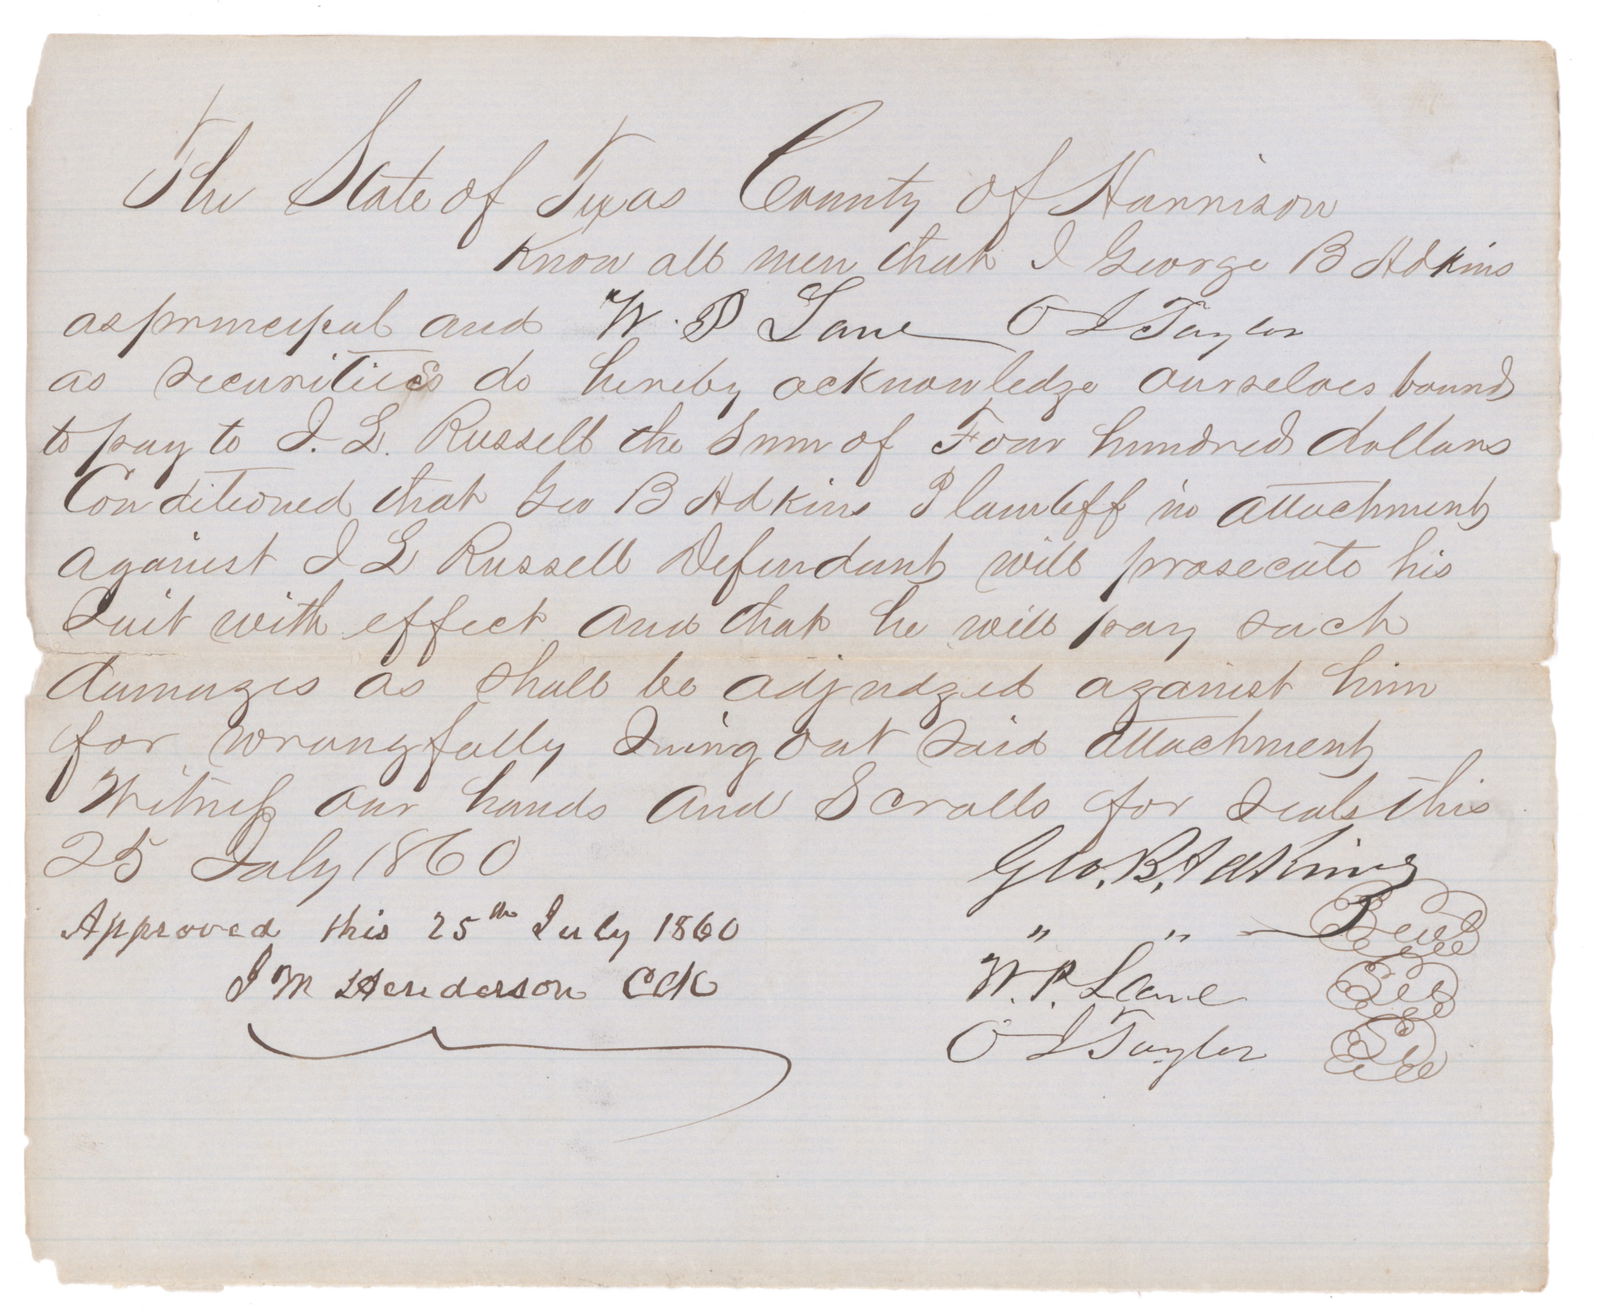 The State of Texas County of Harrison
Know all men that I George B Adkins
as principal and W. P Lane O I Taylor
as securities do hereby acknowledge ourselves bound
to pay to J. L. Russell the Sum of Four hundred dollars
Conditioned that Geo B Adkins Plaintiff in attachment
against J L Russell Defendant will prosecute his
Suit with effect and that he will pay such
damages as shall be adjudged against him
for wrongfully Suing out said attachment
Witness our hands and Scrolls for seals this
25 July 1860
Geo. B. Adkins
Approved this 25th July 1860
" " Seal
J M Henderson Clk
W. P. Lane
O I Taylor